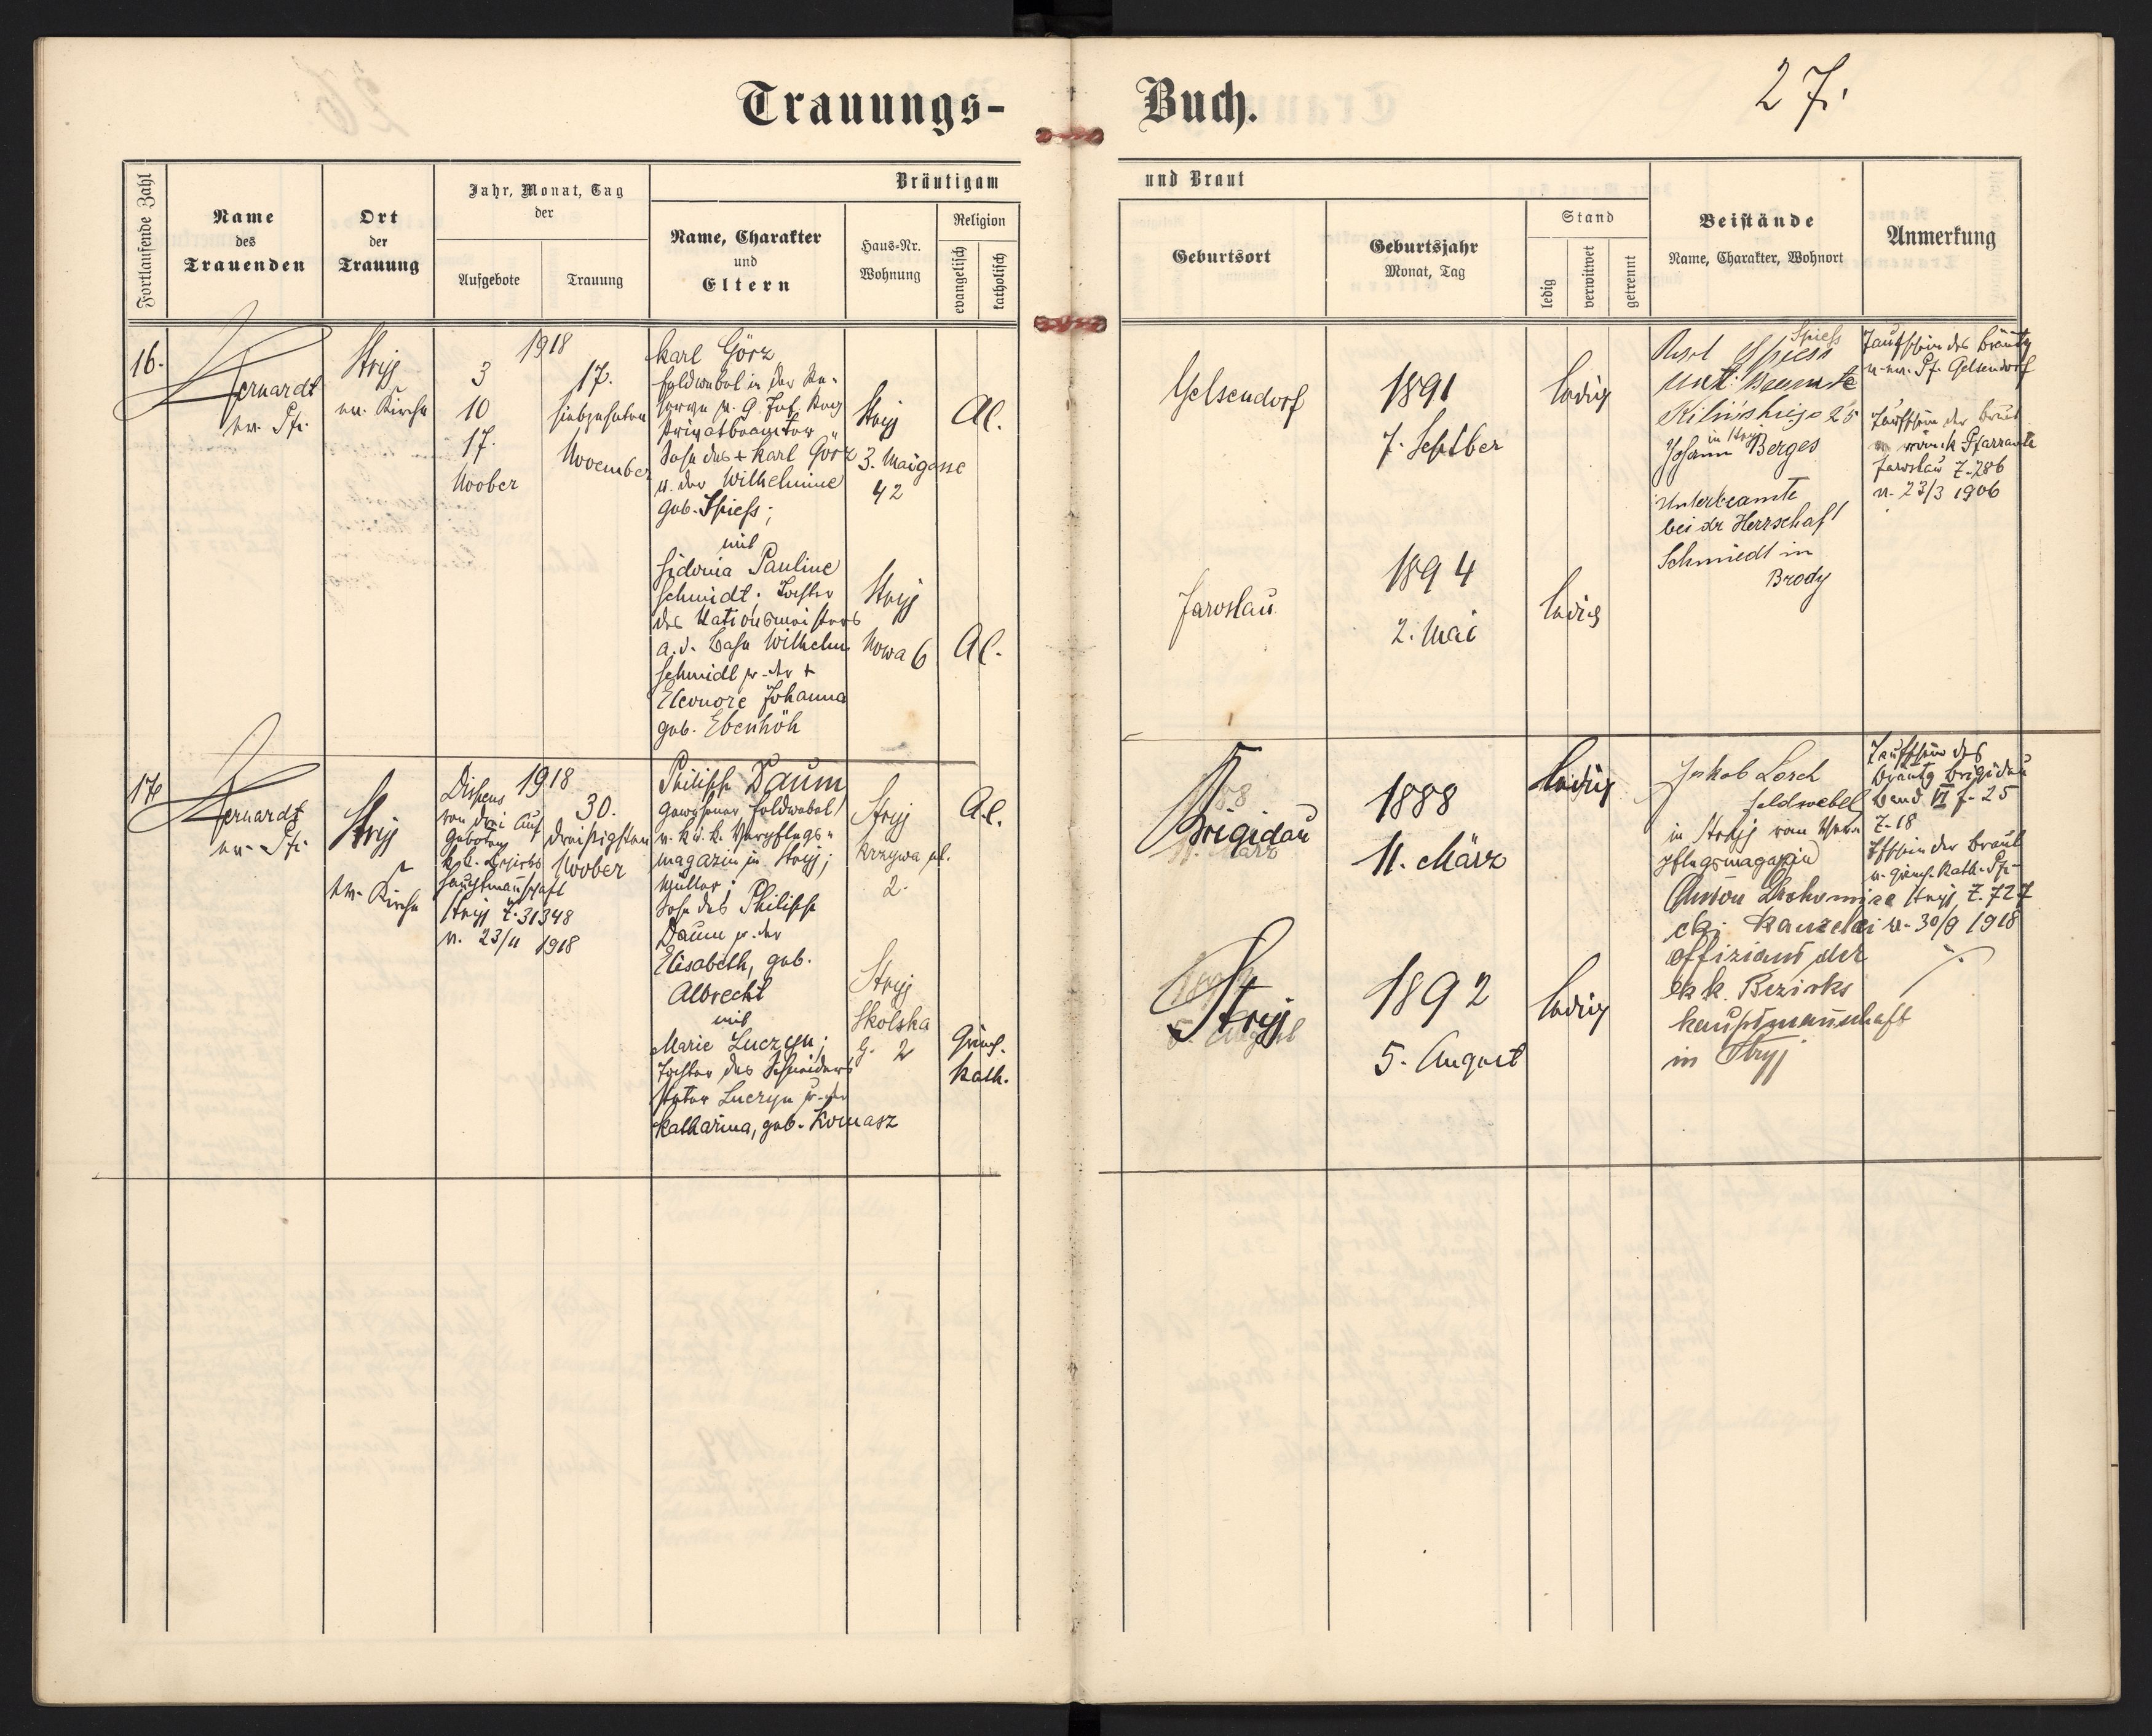 Trauungs-
Buch.
27.
Fortlaufende Zahl
Name
des
Trauenden
Ort
der
Trauung
Jahr, Monat, Tag
der
Aufgebote
Trauung
Bräutigam
Name, Charakter
und
Eltern
Haus-Nr.
Wohnung
Religion
evangelisch
katholisch
und Braut
Geburtsort
Geburtsjahr
Monat, Tag
Stand
ledig
verwitwet
getrennt
Beistände
Name, Charakter, Wohnort
Anmerkung
16.
ev. Pfr.
Stryj
ev. Kirche
1918
3
10
17.
Novber
17.
siebzehnten
November
Karl Görz
Feldwebel in der Re-
serve
Privatbeamter
Sohn des + Karl Görz
u. der Wilhelmine
geb. Spiess;
mit
Sidonia Pauline
Schmidt. Tochter
des Stationsmeisters
a. d. Bahn Wilhelm
Schmidt u. der +
Eleonore Johanna
geb. Ebenhöh
Stryj
3. Maigasse
42
Stryj
Nowa 6
A.C.
A.C.
Gelsendorf
Jaroslau
1891
7. Septber
1894
2. Mai
ledig
ledig
Spiess
Karl Spiess
Kilińskiego 25
in Stryj
Johann Berges
Unterbeamte
bei der Herrschaft
Schmiedt in
Brody
Taufschein des Bräutg
v. ev. Pf. Gelsendorf
Taufschein der Braut
v. Pfarramte
Jaroslau Z. 286
v. 23/3 1906
17.
ev. Pfr.
Stryj
ev. Kirche
1918
Dispens
von drei Auf
geboten
Bezirks
hauptmannschaft
Stryj Z. 31348
v. 23/11 1918
30.
dreißigsten
Novber
Philipp Daum
gewesener Feldwebel
v. k. u. k. Verpflegs-
magazin in Stryj;
Müller;
Sohn des Philipp
Daum u. der
Elisabeth, geb.
Albrecht
mit
Marie Luczyn;
Tochter des Schneiders
Peter Luczyn u. der
Katharina, geb. Komasz
Stryj
Krzywa pl.
2.
Stryj
Skolska
G. 2
A.C.
Griech.
Kath.
Brigidau
Stryj
1888
11. März
1892
5. August
ledig
ledig
Jakob Lorch
Feldwebel
in Stryj vom Ver-
pflegsmagazin
Kanzlei
offiziant der
k.k. Bezirks
hauptmannschaft
in Stryj
Taufschein des
Bräutg Brigidau
Band VI f. 25
Z. 18
Tfschein der Braut
v. griech. Kath. Pfr-
Stryj, Z. 727
v. 30/9 1918